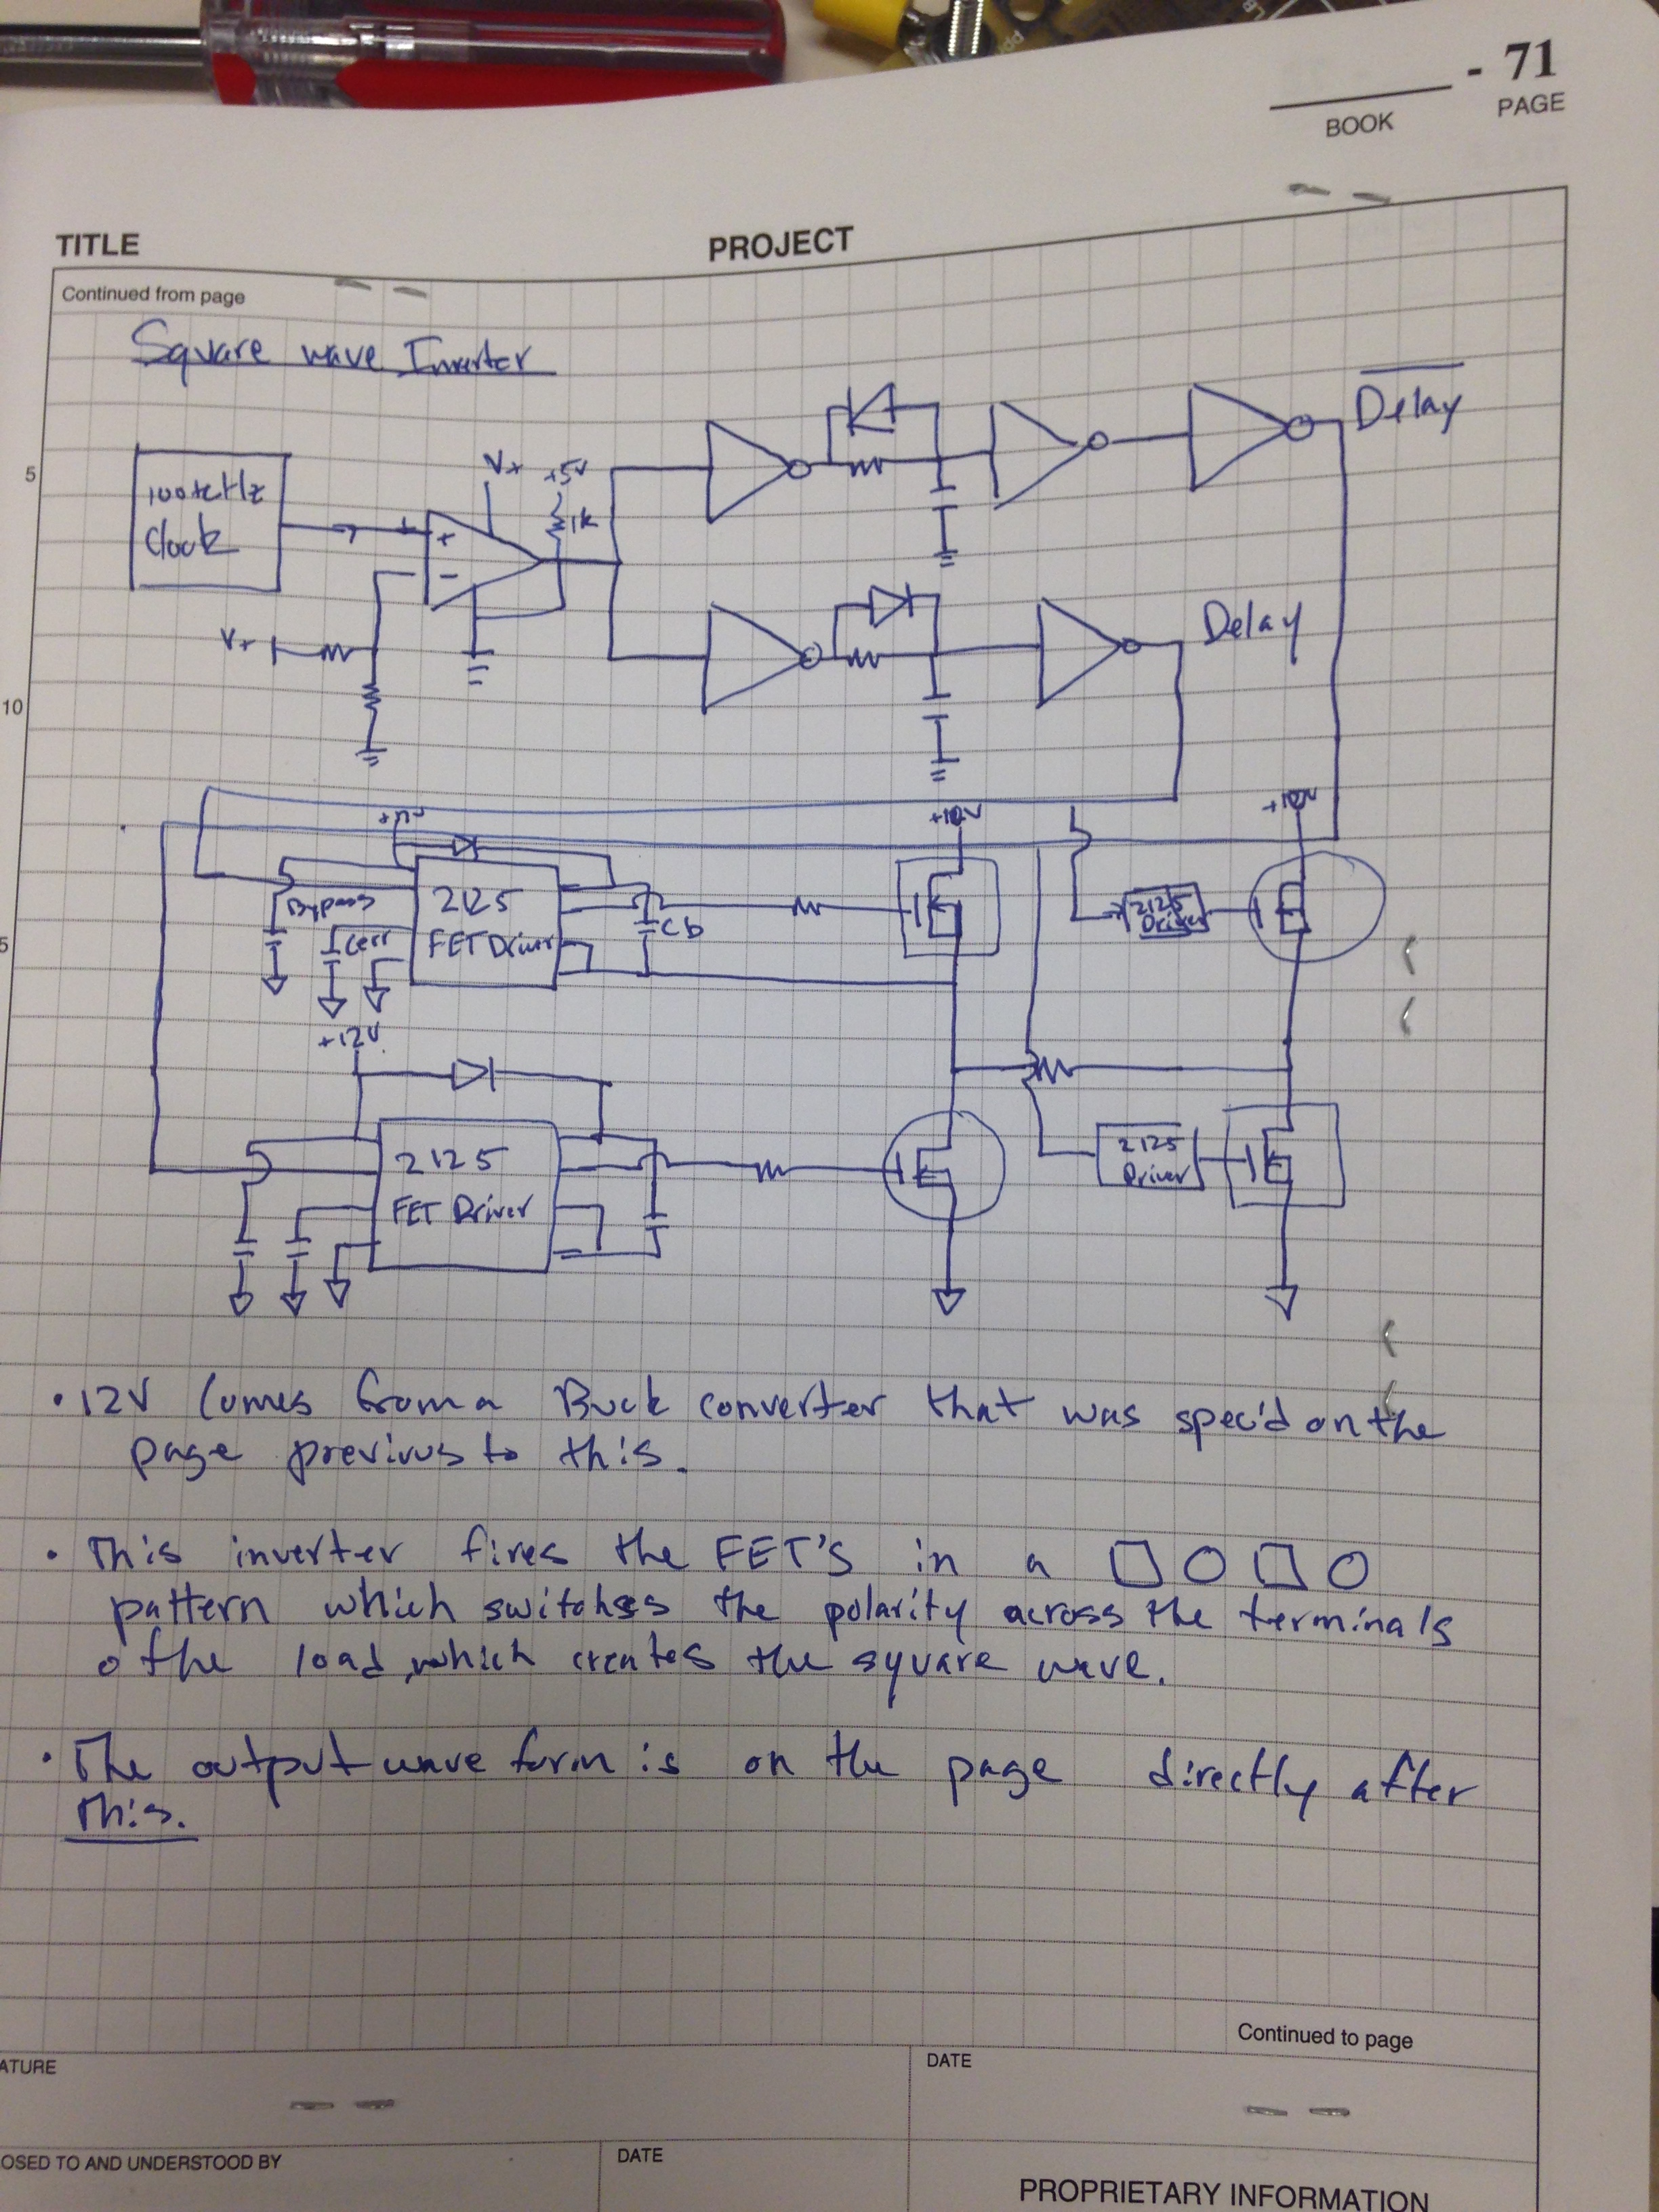 - 71
BOOK
PAGE
TITLE
PROJECT
Continued from page
Square wave Inverter
Delay
100kHz
Clock
V+
+5V
1k
+
-
V+
Delay
5
10
5
+12V
Bypass
Cerr
2125
FET Driver
Cb
2125
Driver
+12V
2125
FET Driver
2125
Driver
• 12V Comes from a Buck converter that was spec'd on the
page previvus to this.
• This inverter fires the FET'S in a □ ○ □ ○
pattern which switches the polarity across the terminals
o the load, which creates the square wave.
• The output wave form is on the page directly after
this.
Continued to page
ATURE
DATE
OSED TO AND UNDERSTOOD BY
DATE
PROPRIETARY INFORMATION